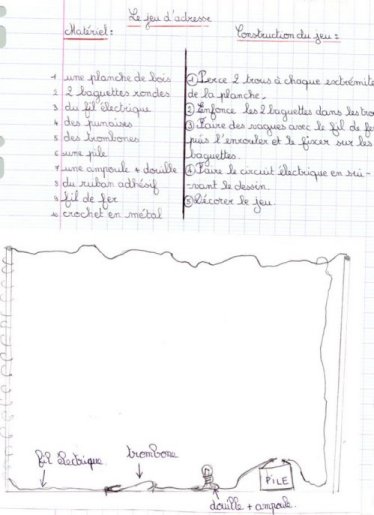 Le jeu d'adresse
Matériel :
1 une planche de bois
2 2 baguettes rondes
3 du fil électrique
4 des punaises
5 des trombones
6 une pile
7 une ampoule + douille
8 du ruban adhésif
9 fil de fer
10 crochet en métal
Construction du jeu :
① Perce 2 trous à chaque extrémité
de la planche.
② Enfonce les 2 baguettes dans les trou
③ Faire des vagues avec le fil de fer
puis l'enrouler et le fixer sur les
baguettes.
④ Faire le circuit électrique en sui-
-vant le dessin.
⑤ Décorer le jeu.
fil électrique
trombone
PILE
douille + ampoule.